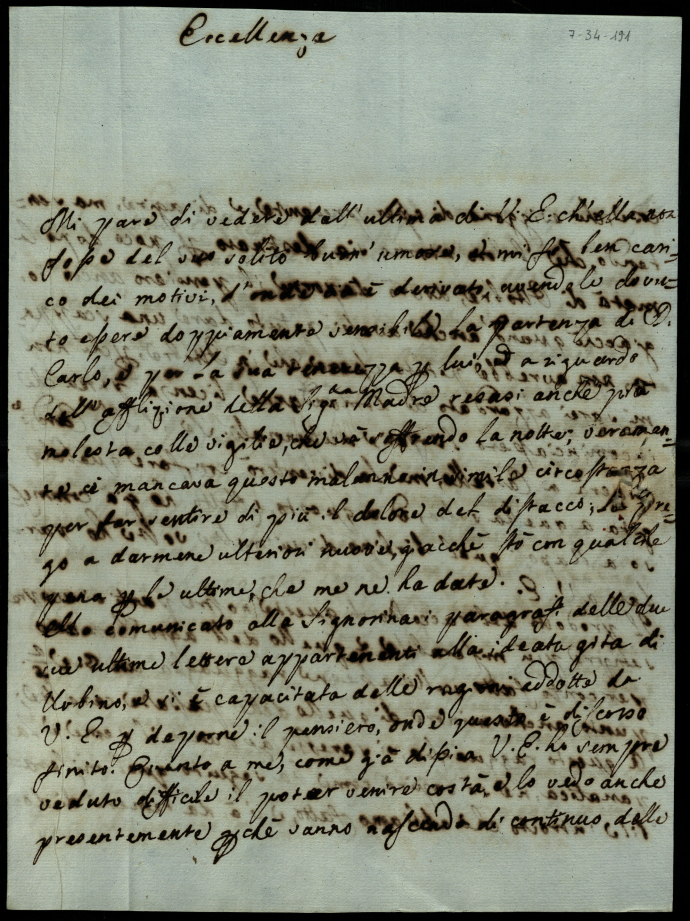 Eccellenza
7-34-191
Mi pare di vedere dall'ultima di V. E. ch'ella non
fosse del suo solito buon' umore, e mi fò ben cari-
co dei motivi, d'onde sia derivato, avendole dovu-
to essere doppiamente sensibile la partenza di D.
Carlo, e per la sua tenerezza p lui, ed a riguardo
dell'afflizione della Sig.ra Madre resasi anche più
molesta colle vigilie, che và soffrendo la notte; veramen-
te ci mancava questo malanno in simile circostanza
per far sentire di più il dolore del distacco; La pre-
go a darmene ulteriori nuove, giacchè stò con qualche
pena p le ultime, che me ne ha date.
Ho comunicato alla Signorina i paragrafi delle due
sue ultime lettere appartenenti alla ideata gita di
Urbino, e si è capacitata delle ragioni addotte da
V. E. p deporne il pensiero, onde questo è discorso
finito. Quanto a me, come già dissi a V. E. hò sempre
veduto difficile il poter venire costà, e lo vedo anche
presentemente pchè vanno nascendo di continuo delle